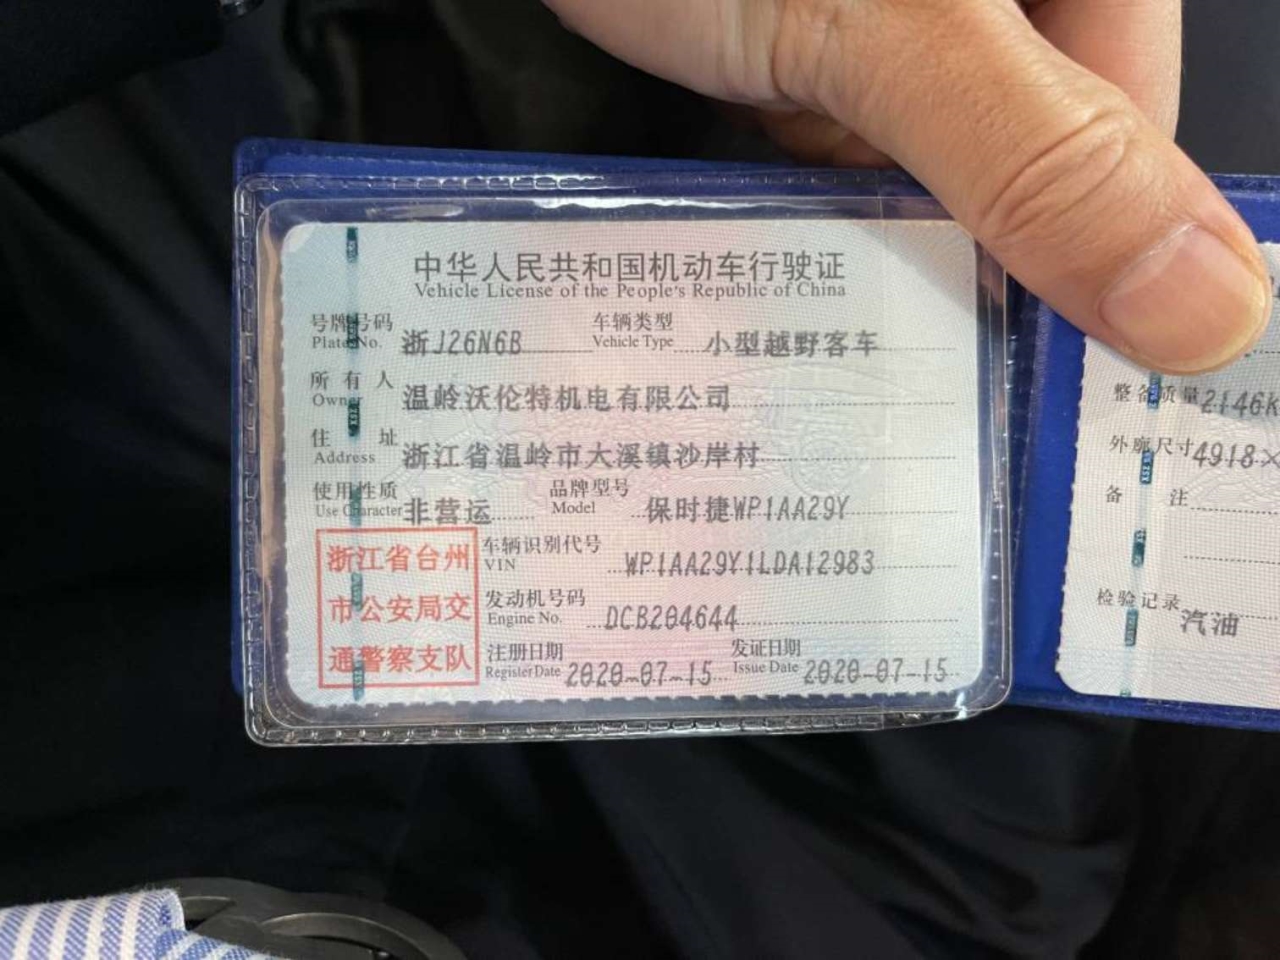 中华人民共和国机动车行驶证
Vehicle License of the People's Republic of China
号牌号码 浙J26N6B 车辆类型 小型越野客车
Plate No. Vehicle Type
所有人 温岭沃伦特机电有限公司
Owner
住址 浙江省温岭市大溪镇沙岸村
Address
使用性质 非营运 品牌型号 保时捷WP1AA29Y
Use Character Model
浙江省台州
市公安局交
通警察支队
车辆识别代号 WP1AA29Y1LDA12983
VIN
发动机号码 DCB204644
Engine No.
注册日期 2020-07-15 发证日期 2020-07-15
Register Date Issue Date
整备质量 2146K
外廓尺寸 4918×
备注
检验记录
汽油